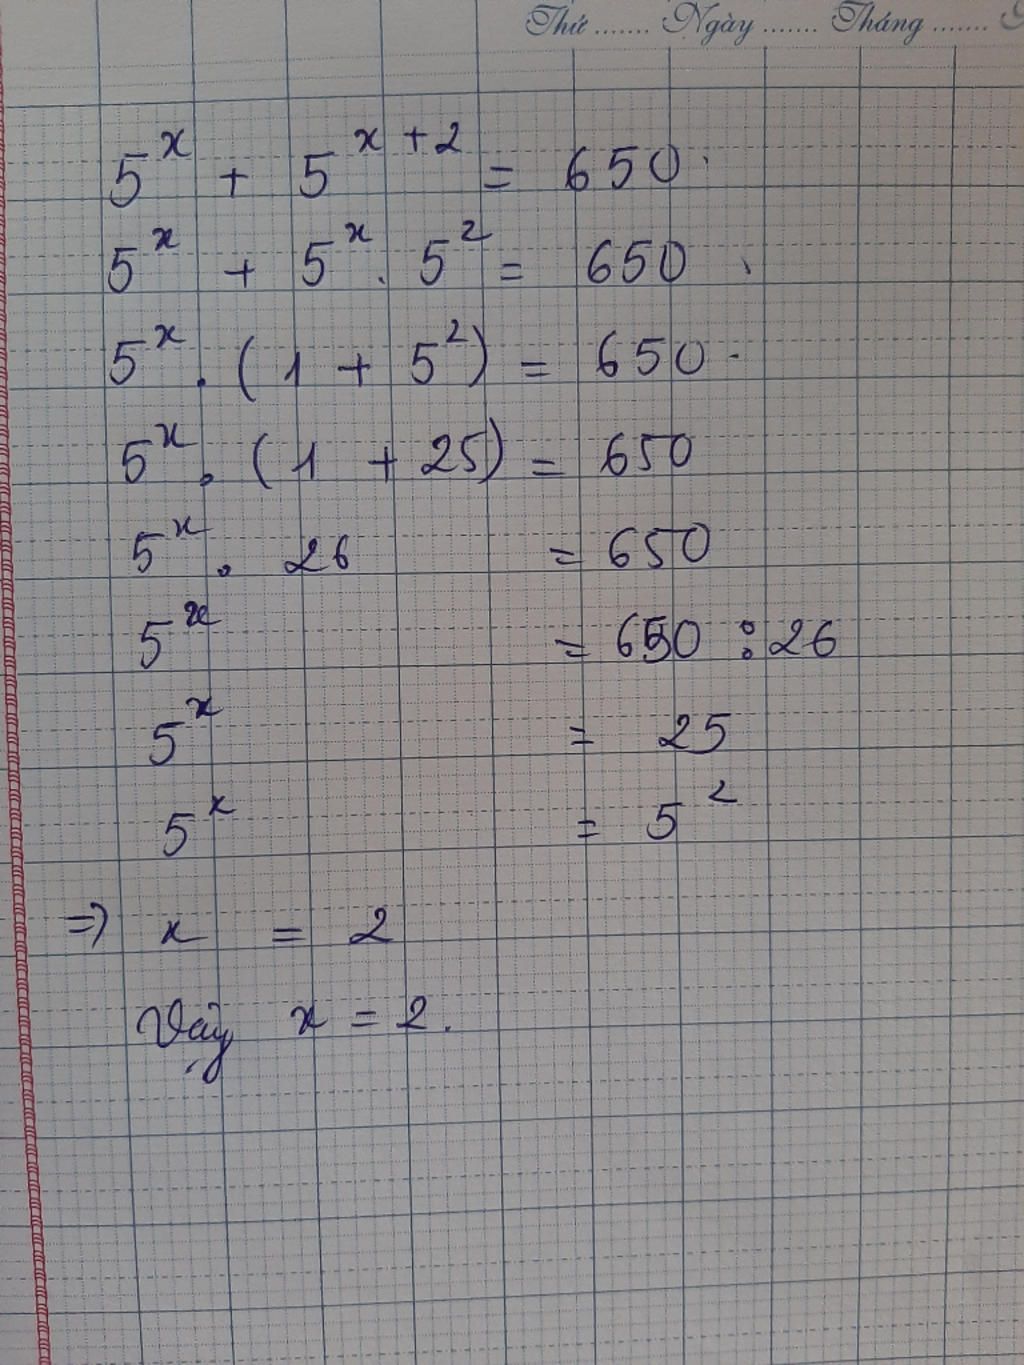 Thứ ....... Ngày ....... Tháng .......
5^x + 5^{x+2} = 650
5^x + 5^x . 5^2 = 650
5^x . (1 + 5^2) = 650
5^x . (1 + 25) = 650
5^x . 26 = 650
5^x = 650 : 26
5^x = 25
5^x = 5^2
=> x = 2
Vậy x = 2.